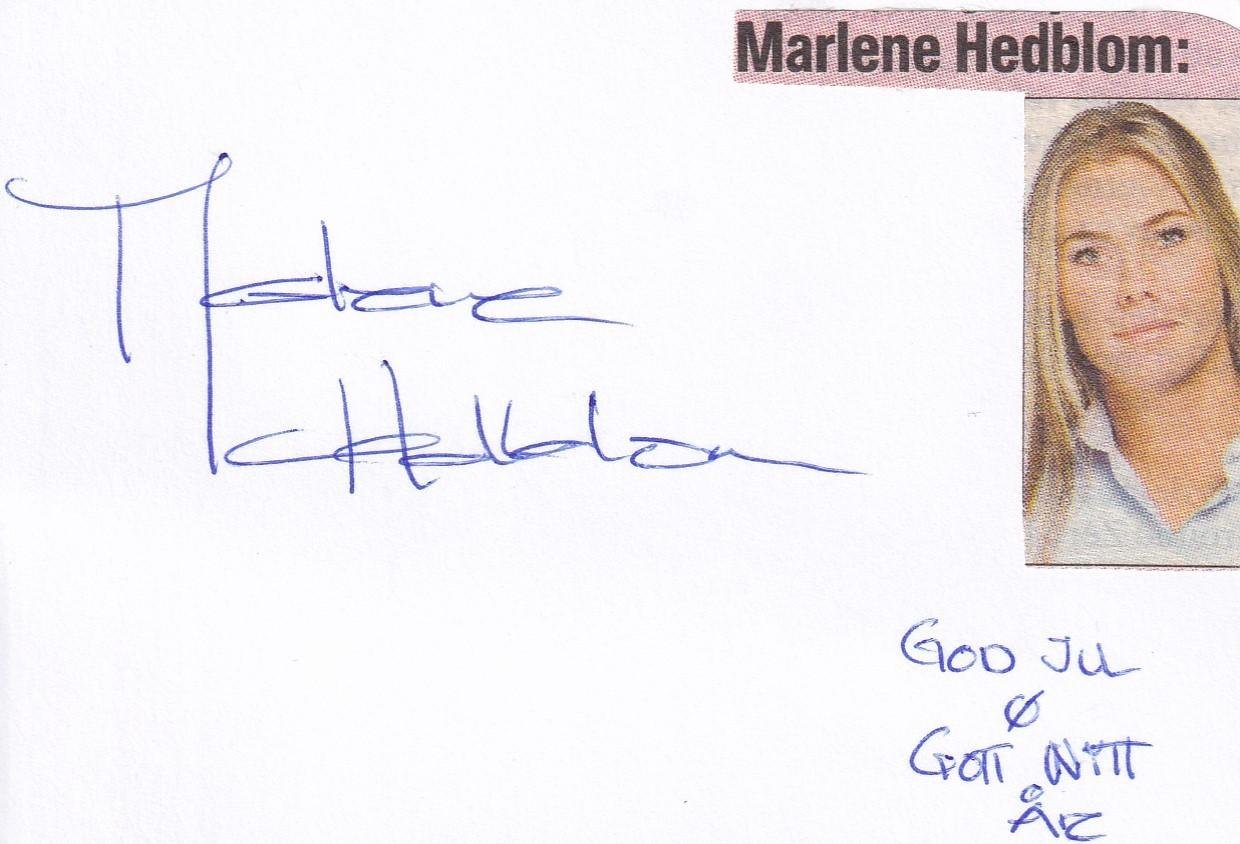 Marlene Hedblom:
Marlene
Hedblom
GOD JUL
&
GOTT NYTT
ÅR